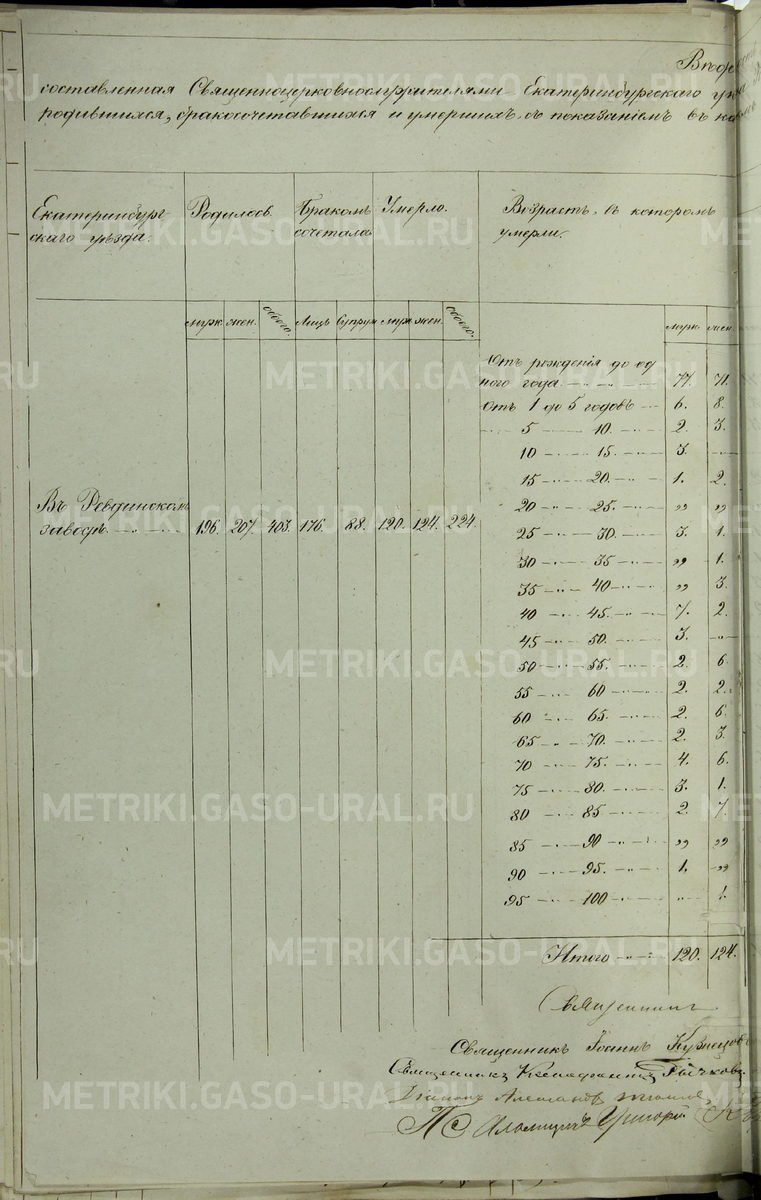 Вѣдо
составленная Священноцерковнослужителями Екатеринбургскаго у
родившихся, бракосочетавшихся и умершихъ, съ показаніемъ въ ко
Екатеринбург-
скаго уѣзда.
Родилось.
Бракомъ
сочеталось
Умерло.
Возрастъ, въ которомъ
умерли.
муж. жен. обоего. Лицъ Супруж муж жен. обоего. муж. жен.
Отъ рожденія до од
ного года 77. 71.
Отъ 1 до 5 годовъ 6. 8.
5 10. 2. 3.
10 15. 3.
15 20. 1. 2.
20 25. „ „
Въ Ревдинскомъ
заводѣ 196. 207. 403. 176. 88. 120. 124. 224.
25 30. 3. 1.
30 35 „ 1.
35 40 „ 3.
40 45. 7. 2.
45 50. 3.
50 55. 2. 6.
55 60 2. 2.
60 65. 2. 6.
65 70. 2. 3.
70 75. 4. 6.
75 80. 3. 1.
80 85 2. 7.
85 90 „ „
90 95. 1. „
95 100 „ 1.
Итого 120. 124.
Священникъ
Священникъ Іоаннъ Кузнецовъ
Священникъ
METRIKI.GASO-URAL.RU